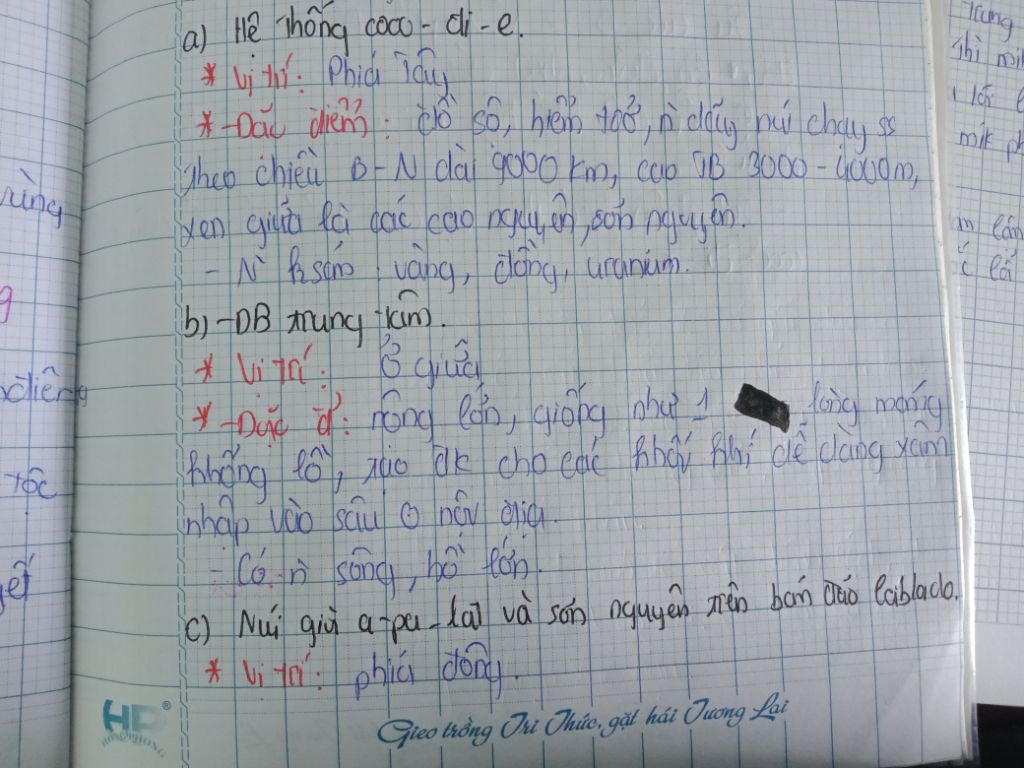 a) Hệ thống cooc-di-e.
* Vị trí: Phía Tây
* Đặc điểm: đồ sộ, hiểm trở, n dãy núi chạy ss
theo chiều B-N dài 9000 km, cao TB 3000-4000m,
xen giữa là các cao nguyên, sơn nguyên.
- N` k sản, vàng, đồng, uranium.
b) ĐB trung tâm.
* Vị trí: Ở giữa
* Đặc đ': rộng lớn, giống như 1 lòng máng
khổng lồ, tạo đk cho các khối khí dễ dàng xâm
nhập vào sâu nội địa.
- Có n` sông, hồ lớn.
c) Núi già a-pa-lat và sơn nguyên trên bán đảo lablado.
* Vị trí: phía đông.
HP®
Gieo trồng Tri Thức, gặt hái Tương Lai
rùng
g
điểm
tộc
yết
trung
thì mik
mik ph
m lâm